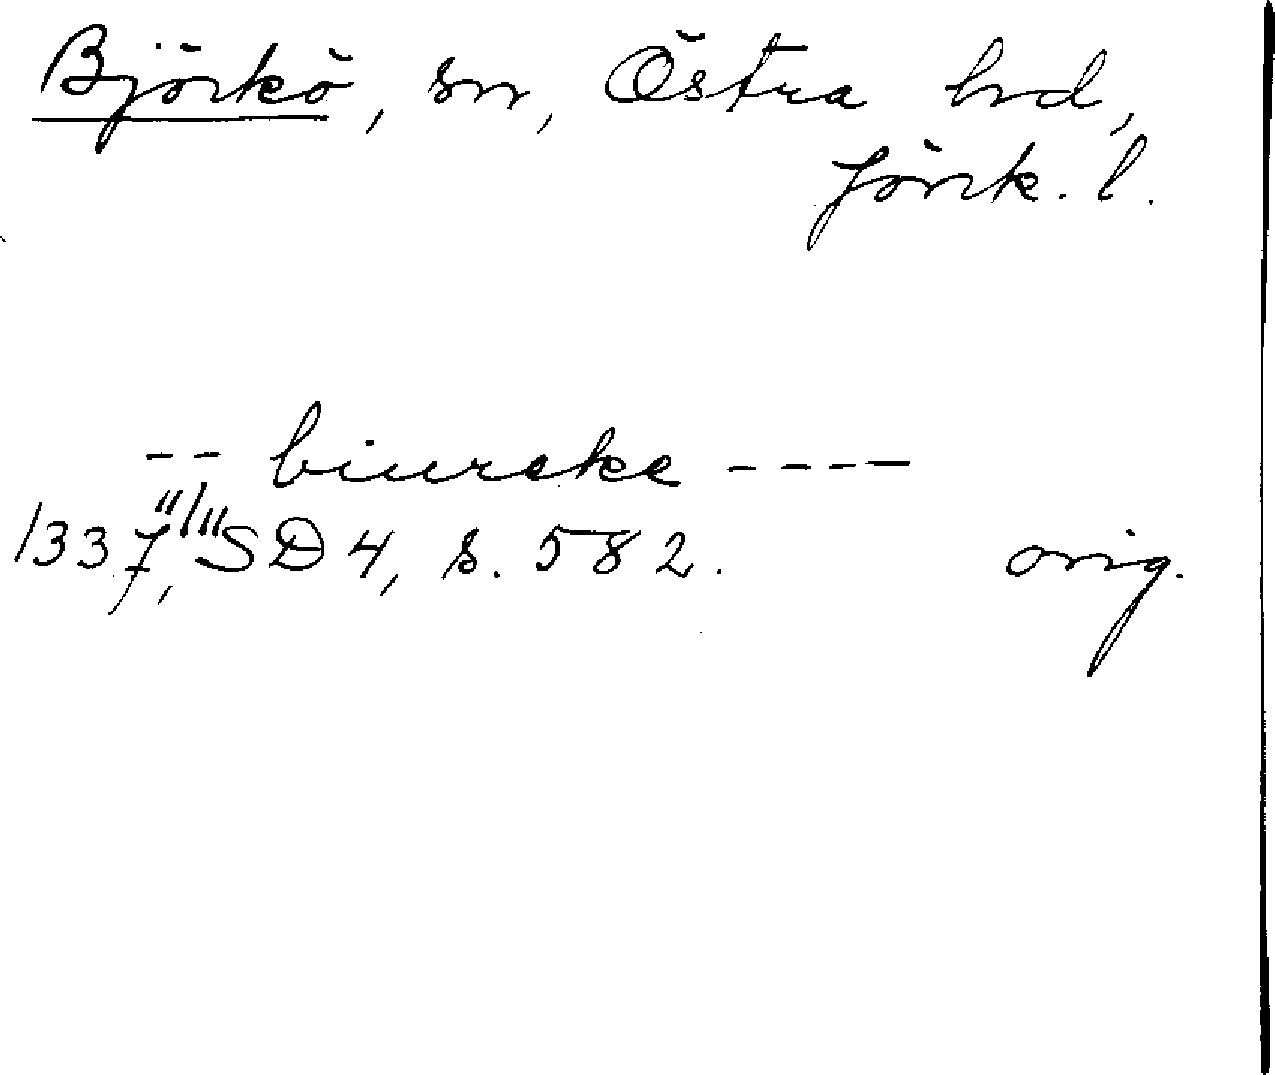 Björkö, sn, Östra hd,
Jönk. l.
-- biureke ----
1337 11/III, SD 4, s. 582. orig.